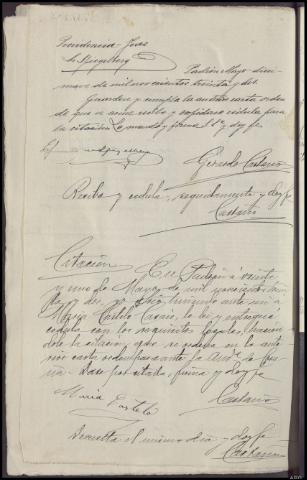 Providencia - Juez
Sr. Puigcerberg
Padrón Mayo diez
nueve de mil novecientos treinta y dos.
Guárdese y cumpla la anterior carta orden
de que se acuse recibo y expídase cédula para
la citación. Lo mandó y firma S. Sª y doy fe.
Gerardo Castaño
Recibo y cédula, seguidamente y doy fe
Castaño
Citación. En Padrón a veinte
y uno de Mayo de mil novecientos trein
ta y dos, yo teniendo ante mí a
María Castelo Casais, la leí y entregué
cédula con los requisitos legales, hacien
dole la citación que se ordena en la ante
rior carta orden para ante la Audª de
Dase por citada, firma y doy fe
María Castelo
Castaño
Devuelta el mismo día - doy fe
Castaño